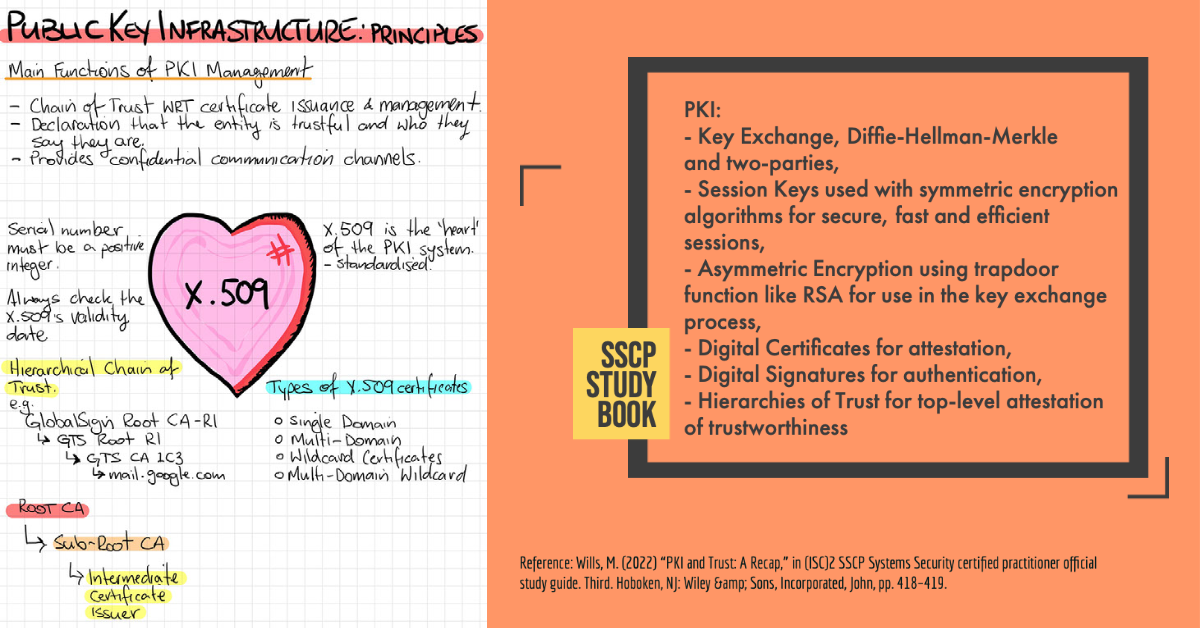 PUBLIC KEY INFRASTRUCTURE: PRINCIPLES
Main Functions of PKI Management
- Chain of Trust WRT certificate issuance & management.
- Declaration that the entity is trustful and who they
say they are.
- Provides confidential communication channels.
Serial number
must be a positive
integer.
Always check the
X.509's validity
date
#
X.509
X.509 is the 'heart'
of the PKI system.
- standardised.
Hierarchical Chain of
Trust.
e.g.
GlobalSign Root CA-R1
↳ GTS Root R1
↳ GTS CA 1C3
↳ mail.google.com
Types of X.509 certificates
o Single Domain
o Multi-Domain
o Wildcard Certificates
o Multi-Domain Wildcard
ROOT CA
↳ Sub-Root CA
↳ Intermediate
Certificate
Issuer
PKI:
- Key Exchange, Diffie-Hellman-Merkle
and two-parties,
- Session Keys used with symmetric encryption
algorithms for secure, fast and efficient
sessions,
- Asymmetric Encryption using trapdoor
function like RSA for use in the key exchange
process,
- Digital Certificates for attestation,
- Digital Signatures for authentication,
- Hierarchies of Trust for top-level attestation
of trustworthiness
SSCP
STUDY
BOOK
Reference: Wills, M. (2022) “PKI and Trust: A Recap,” in (ISC)2 SSCP Systems Security certified practitioner official
study guide. Third. Hoboken, NJ: Wiley &amp; Sons, Incorporated, John, pp. 418–419.